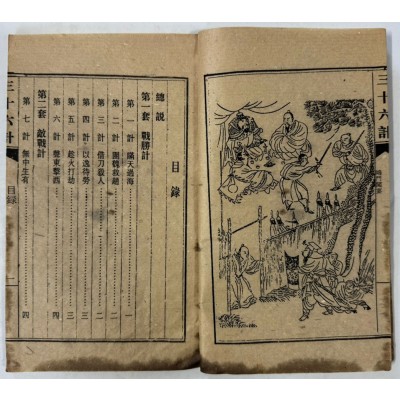 三十六計
目錄
總說
第一套 戰勝計
第一計 瞞天過海……一
第二計 圍魏救趙……二
第三計 借刀殺人……二
第四計 以逸待勞……三
第五計 趁火打劫……三
第六計 聲東擊西……四
第二套 敵戰計
第七計 無中生有……四
三十六計
目錄